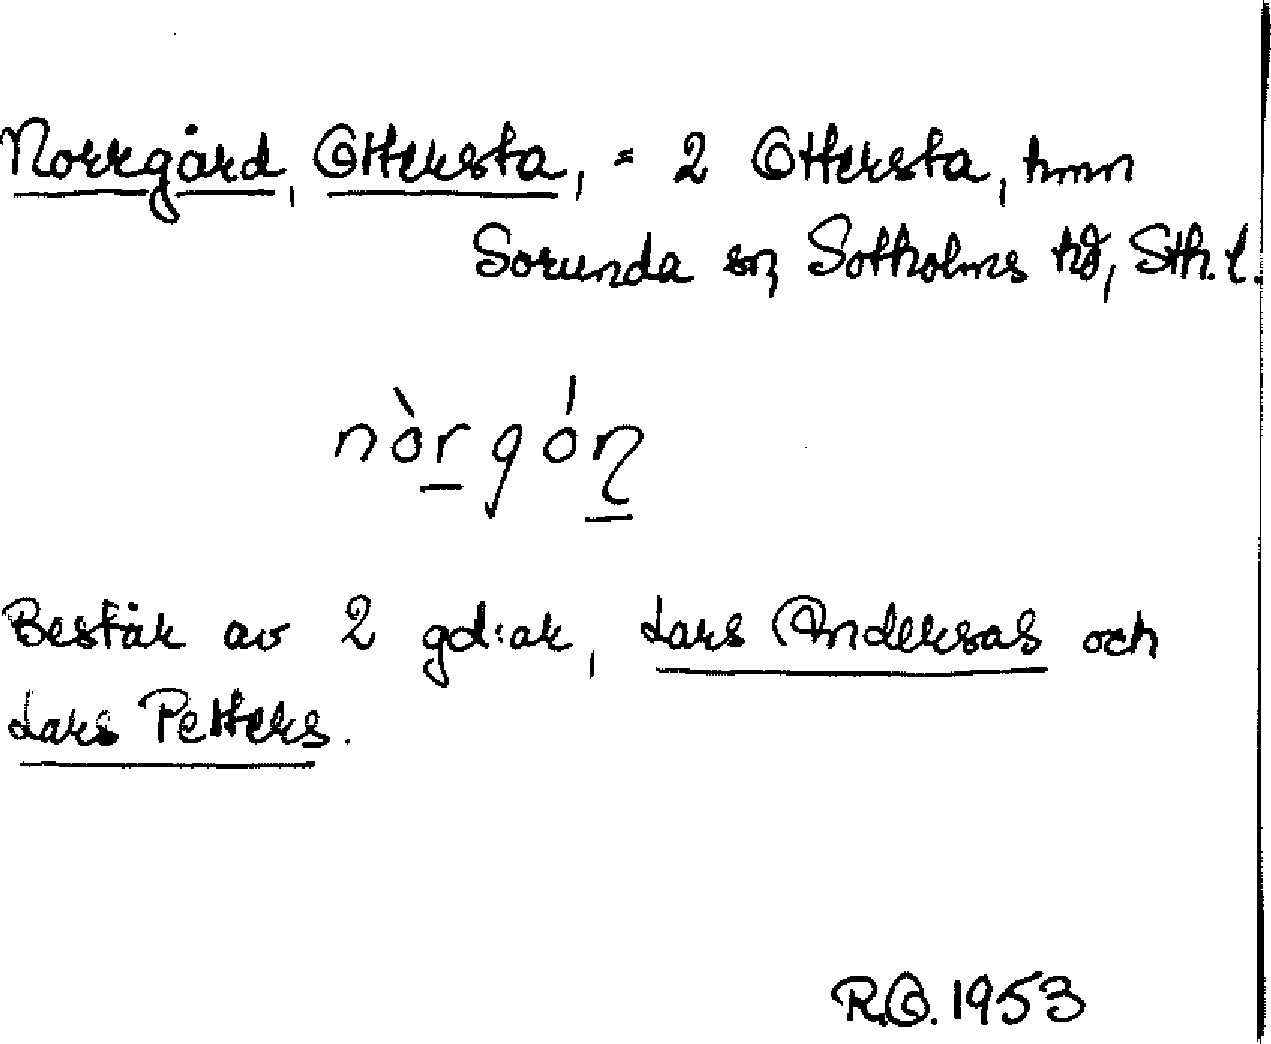 Norrgård, Ottersta, = 2 Ottersta, hmn
Sorunda sn, Sotholms hd, Sth. l.
nòrgóɳ
Består av 2 gd:ar, Lars Andersas och
Lars Petters.
R.O. 1953